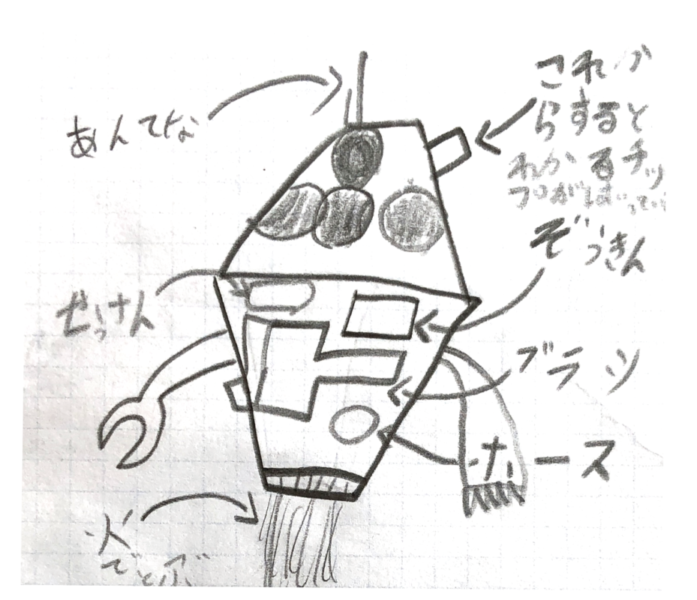 あんてな
これか
らすると
わかるチッ
プがはいってい
ぞうきん
せっけん
ブラシ
ホース
火
でとぶ